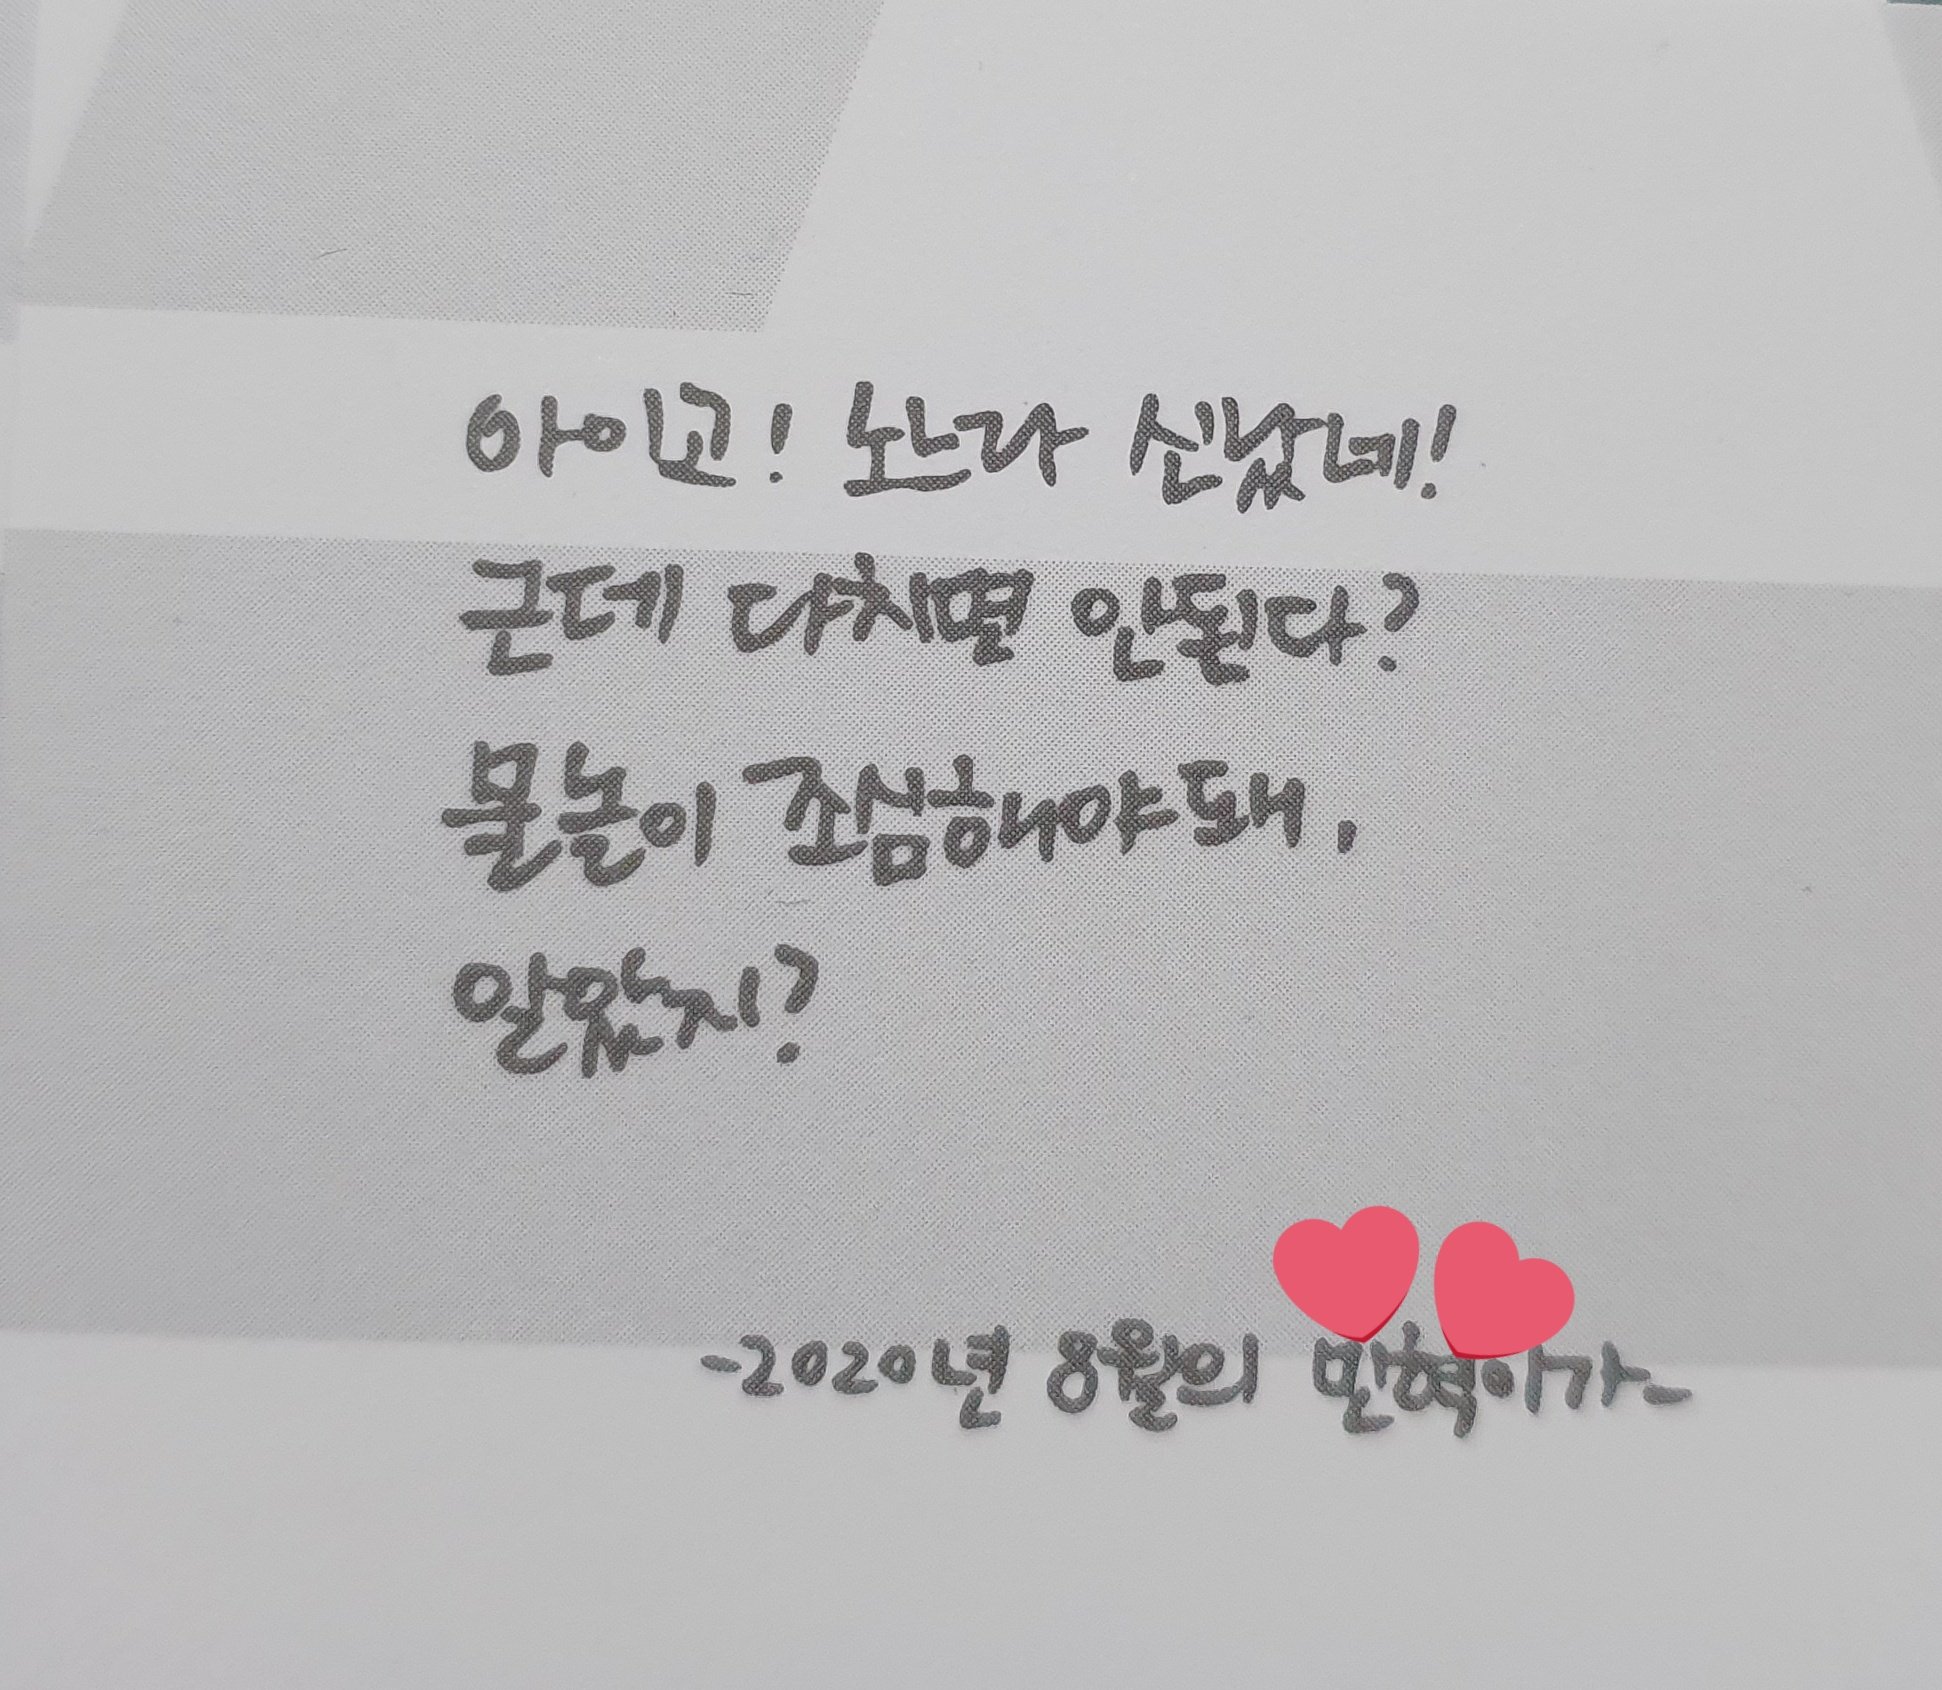 아이고! 노느라 신났네!
근데 다치면 안된다?
물놀이 조심해야돼.
알았지?
-2020년 8월의 민혁이가-